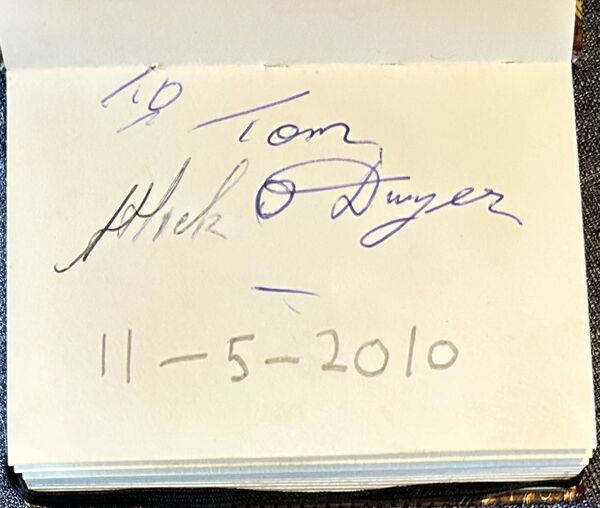 To Tom
Mick O Dwyer
—
11-5-2010